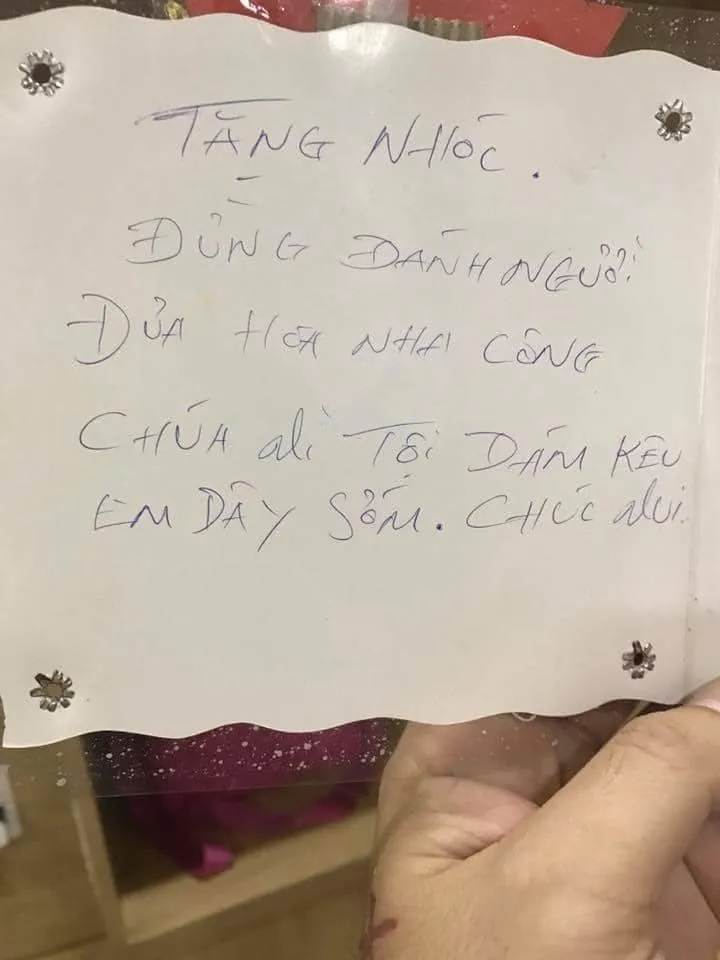 TẶNG NHÓC.
ĐỪNG ĐÁNH NGƯỜI
ĐƯA HOA NHA CÔNG
CHÚA ơi TỘI DÁM KÊU
EM DẬY SỚM. CHÚC vui.